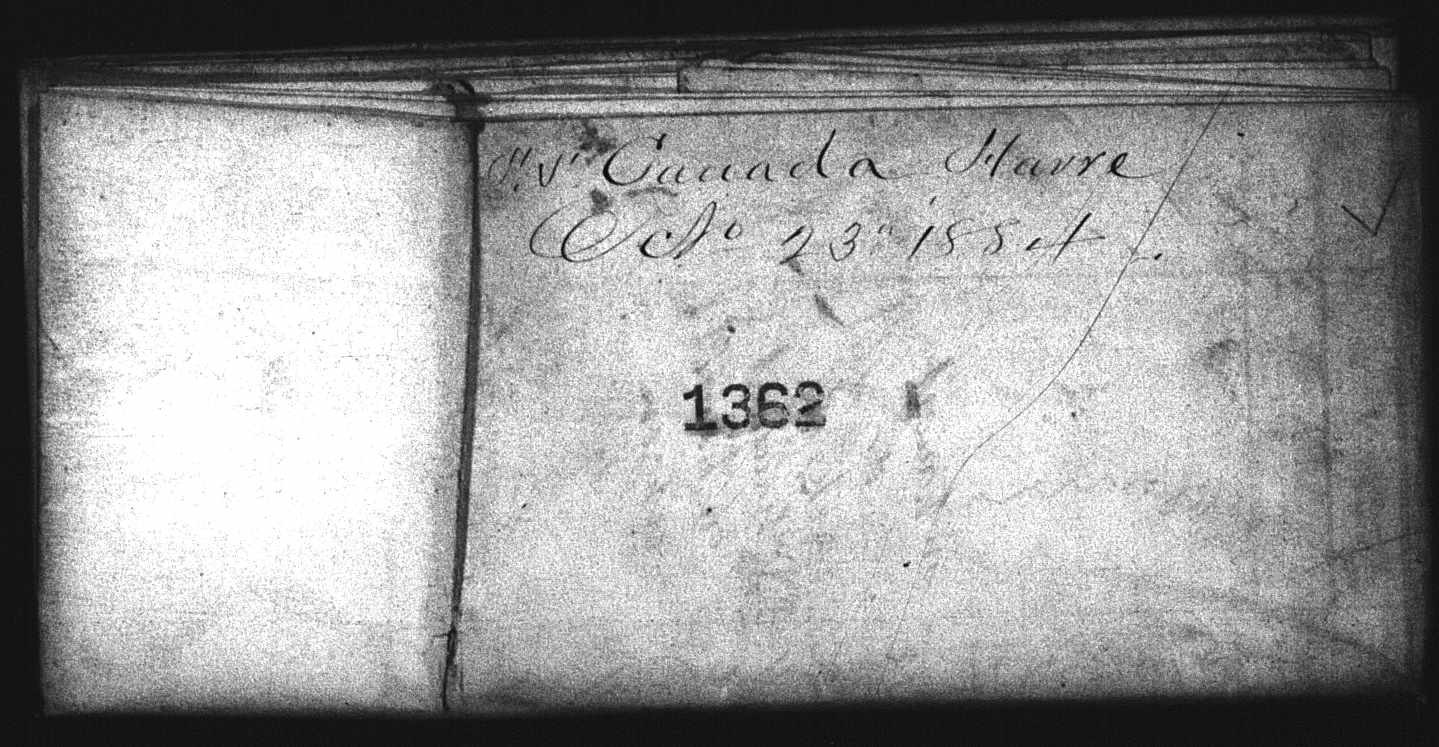 S. S. Canada Havre
Octo 23d 1884.
1362